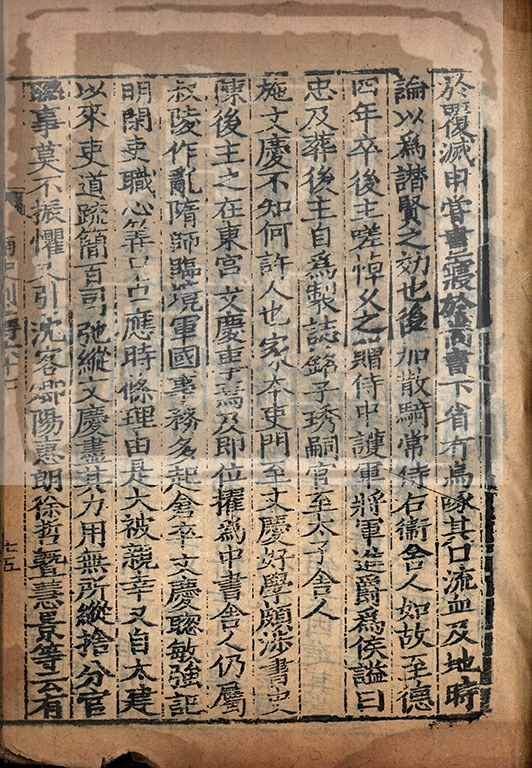 於覆滅申嘗晝寢於尚書下省有烏啄其口流血及地時
論以為譖賢之効也後加散騎常侍右衛舍人如故至德
四年卒後主嗟悼久之贈侍中護軍將軍進爵為侯謚曰
忠及葬後主自為製誌銘子琇嗣官至太子舍人
施文慶不知何許人也家本吏門至文慶好學頗涉書史
陳後主之在東宮文慶事焉及即位擢為中書舍人仍屬
叔陵作亂隋師臨境軍國事務多起倉卒文慶聰敏強記
明閑吏職心筭口占應時條理由是大被親幸又自太建
以來吏道疏簡百司弛縱文慶盡其力用無所縱捨分官
聯事莫不振懼又引沈客卿陽惠朗徐哲暨慧景等云有
七五